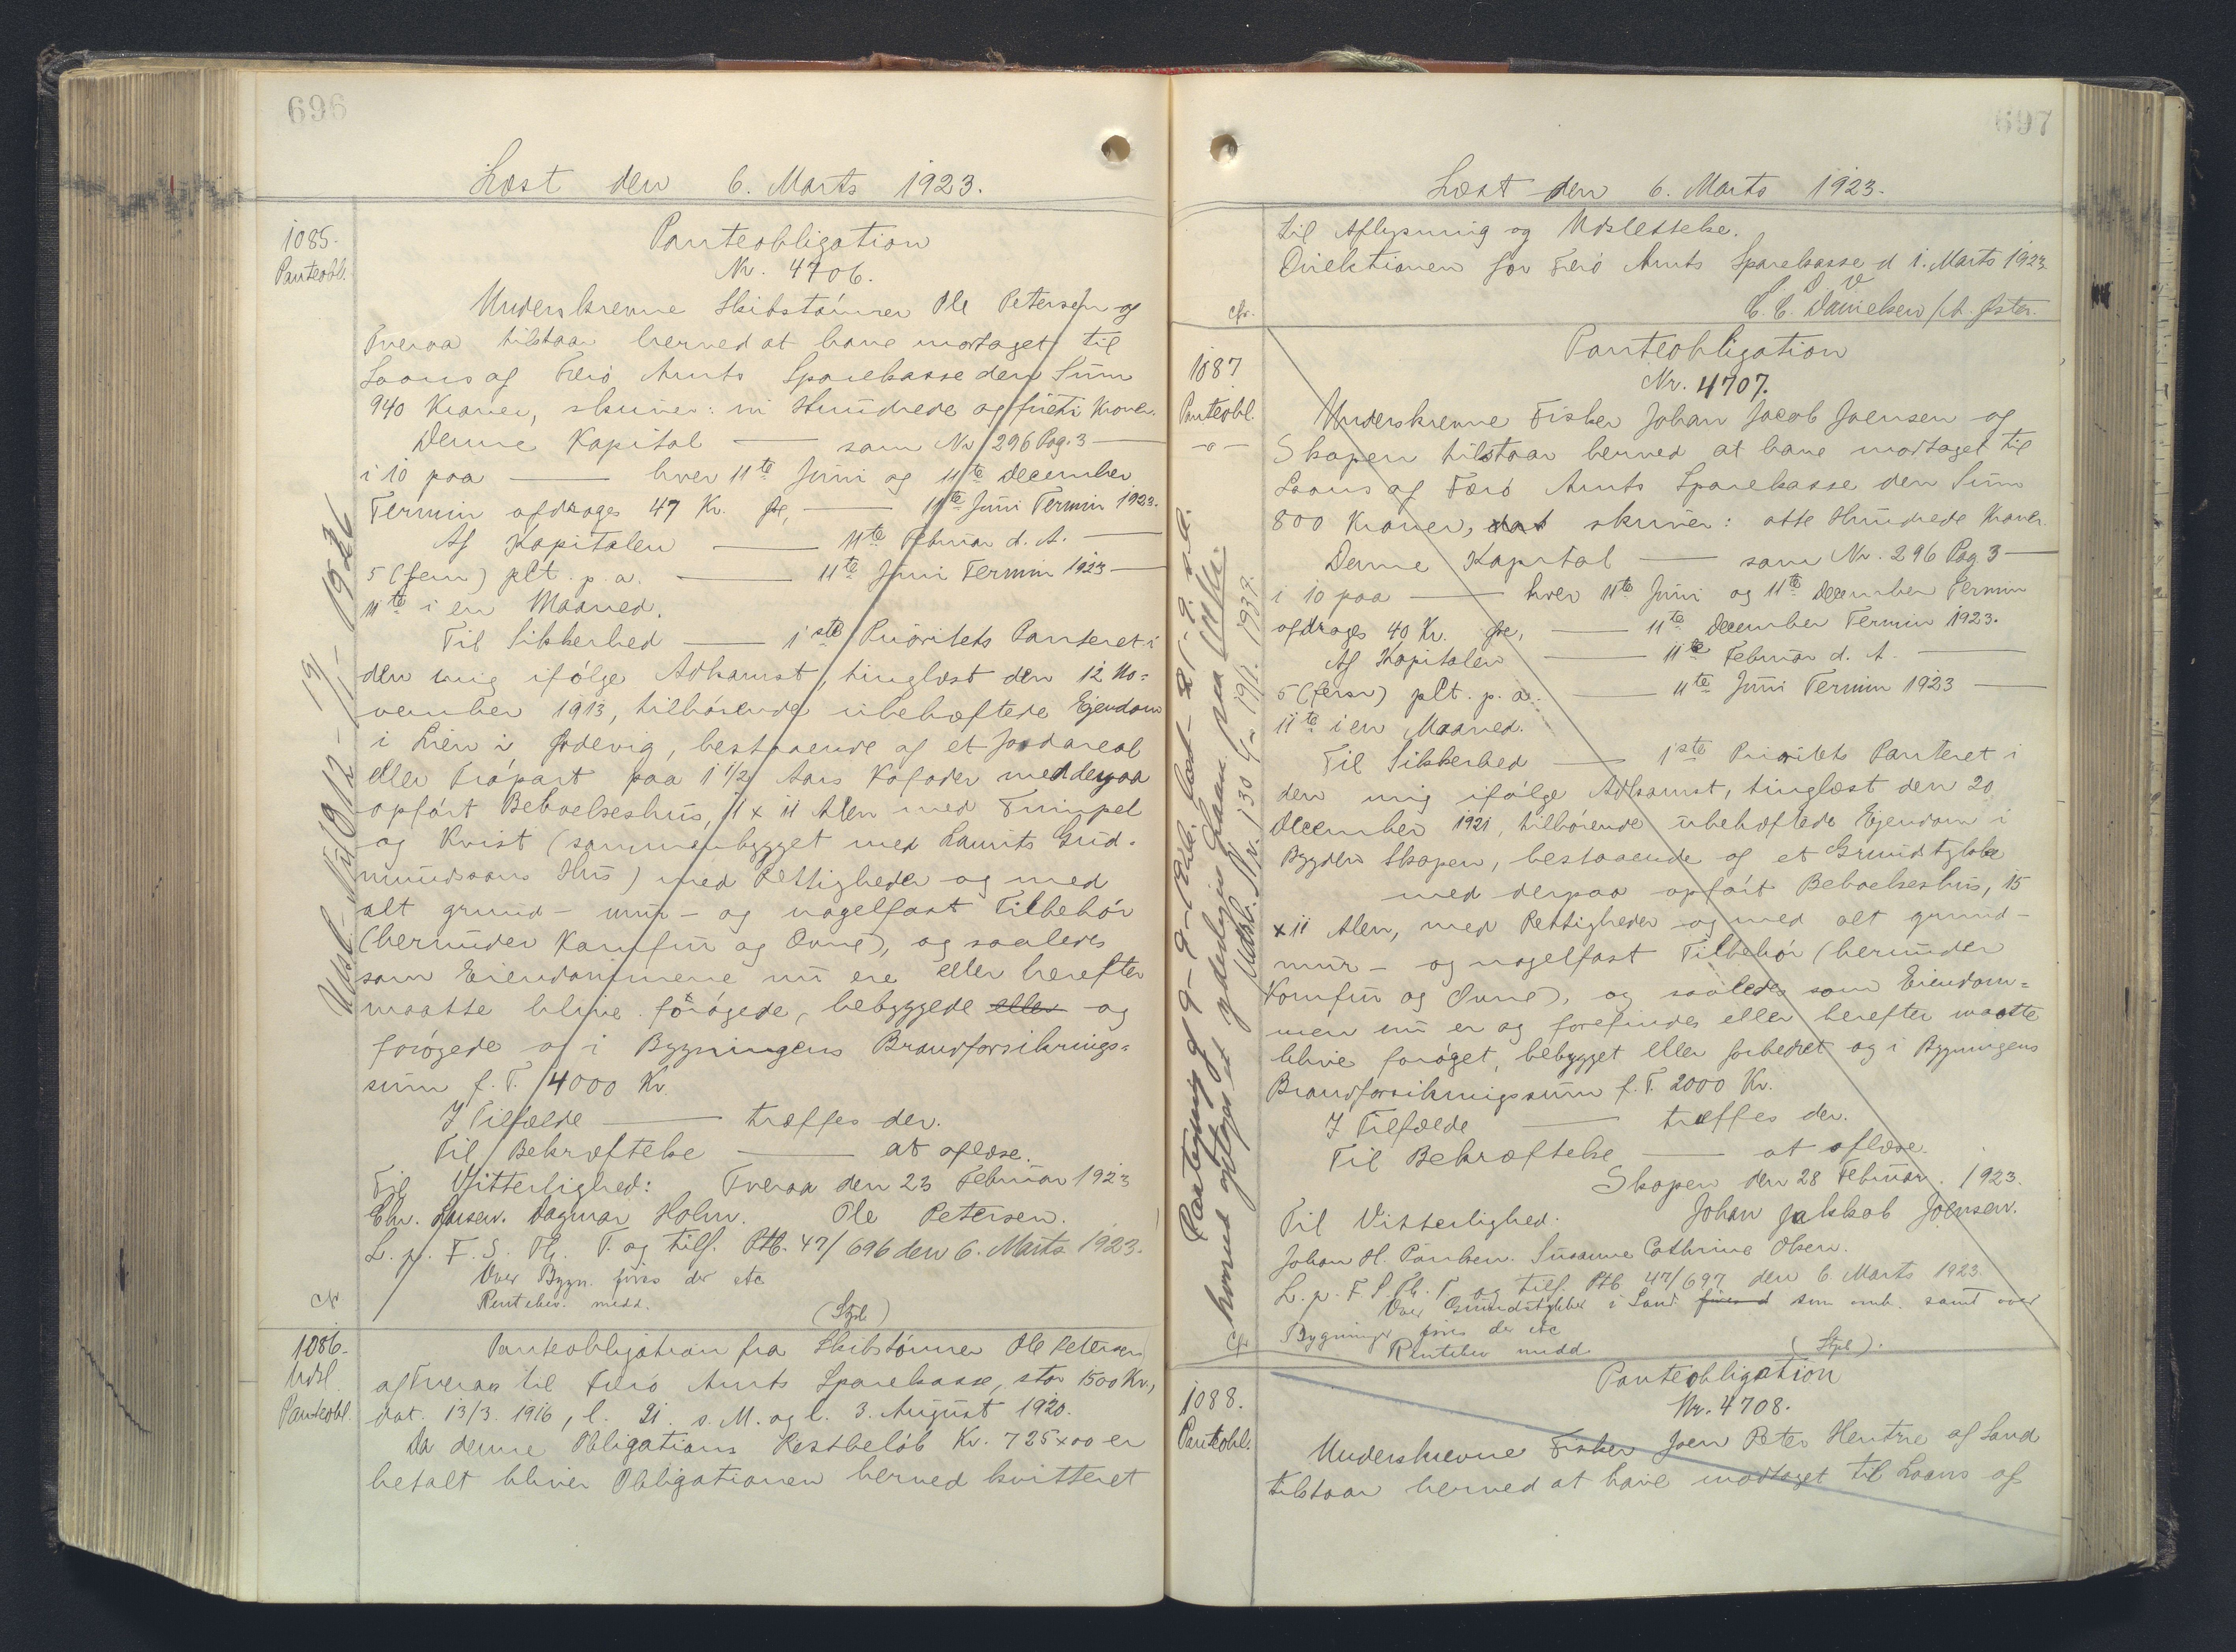 696
Læst den 6. Marts 1923.
1085.
Panteobl.
Panteobligation
Nr. 4706.
Underskrevne Skibstømrer Ole Petersen af
Tveraa tilstaar herved at have modtaget til
Laans af Færø Amts Sparekasse den Sum
940 Kroner, skriver: ni Hundrede og fireti Kroner.
Denne Kapital — som Nr. 296 Pag. 3 —
i 10 paa — hver 11te Juni og 11te December
Termin afdrages 47 Kr. — 11te Juni Termin 1923.
Af Kapitalen — 11te Februar d. A. —
5 (fem) pCt. p. a. — 11te Juni Termin 1923 —
11te i en Maaned.
Til Sikkerhed — 1ste Prioritets Panteret i
den mig ifølge Adkomst, tinglæst den 12 No-
vember 1913, tilhørende ubehæftede Ejendom
i Lien i Ørdevig, bestaaende af et Jordareal
eller Trøpart paa 1 1/2 Aars Kofoder med derpaa
opført Beboelseshus, 11 x 11 Alen med Frimpel
og Kvist (sammenbygget med Laurits Gud-
mundsens Hus) med Rettigheder og med
alt grund- mur- og nagelfast Tilbehør
(herunder Komfur og Ovne), og saaledes
som Eiendommene nu ere eller herefter
maatte blive forøgede, bebyggede eller og
forøgede og i Bygningens Brandforsikrings-
sum f. T. 4000 Kr.
I Tilfælde — træffes der.
Til Bekræftelse — at aflæse.
Til Vitterlighed: Tveraa den 23 Februar 1923
Chr. Larsen. Dagmar Holm. Ole Petersen.
L. p. F. S. Th. T. og tilf. Ptb. 47/696 den 6. Marts 1923.
Over Bygn. føres der etc
Rentebev. medd. (Stpl.)
Cfr
Udsl. 19/1 1926
1086.
Udsl.
Panteobl.
Panteobligation fra Skibstømrer Ole Petersen
af Tveraa til Færø Amts Sparekasse, stor 1500 Kr.,
dat. 13/3. 1916, l. 21. s. M. og l. 3. August 1920.
Da denne Obligations Restbeløb Kr. 725x00 er
betalt bliver Obligationen herved kvitteret
697
Læst den 6. Marts 1923.
til Aflysning og Udslettelse.
Direktionen for Færø Amts Sparekasse d 1. Marts 1923.
C. C. Danielsen / A. Øster.
Cfr.
1087
Panteobl.
-o-
Panteobligation
Nr. 4707.
Underskrevne Fisker Johan Jacob Joensen af
Skopen tilstaar herved at have modtaget til
Laans af Færø Amts Sparekasse den Sum
800 Kroner, skriver: otte Hundrede Kroner.
Denne Kapital — som Nr. 296 Pag 3 —
i 10 paa — hver 11te Juni og 11te December Termin
afdrages 40 Kr. — 11te December Termin 1923.
Af Kapitalen — 11te Februar d. A. —
5 (fem) pCt. p. a. — 11te Juni Termin 1923 —
11te i en Maaned.
Til Sikkerhed — 1ste Prioritets Panteret i
den mig ifølge Adkomst, tinglæst den 20
December 1921, tilhørende ubehæftede Ejendom i
Bygden Skopen, bestaaende af et Grundstykke
med derpaa opført Beboelseshus, 15
x 11 Alen, med Rettigheder og med alt grund-
mur- og nagelfast Tilbehør (herunder
Komfur og Ovne), og saaledes som Eiendom-
men nu er og forefindes eller herefter maatte
blive forøget, bebygget eller forbedret og i Bygningens
Brandforsikringssum f. T. 2000 Kr.
I Tilfælde — træffes der.
Til Bekræftelse — at aflæse.
Skopen den 28 Februar 1923.
Til Vitterlighed. Johan Jakkob Joensen.
Johan H. Poulsen. Susanne Cathrine Olsen.
L. p. F. S. Th. T. og tilf. Ptb. 47/697 den 6. Marts 1923.
Over Grundstykket i Sand føres d som omh. samt over
Bygninger føres der etc
Rentebev medd. (Stpl.).
Cfr
1088.
Panteobl.
Panteobligation
Nr. 4708.
Underskrevne Fisker Joen Peter Hentze af Sand
tilstaar herved at have modtaget til Laans af